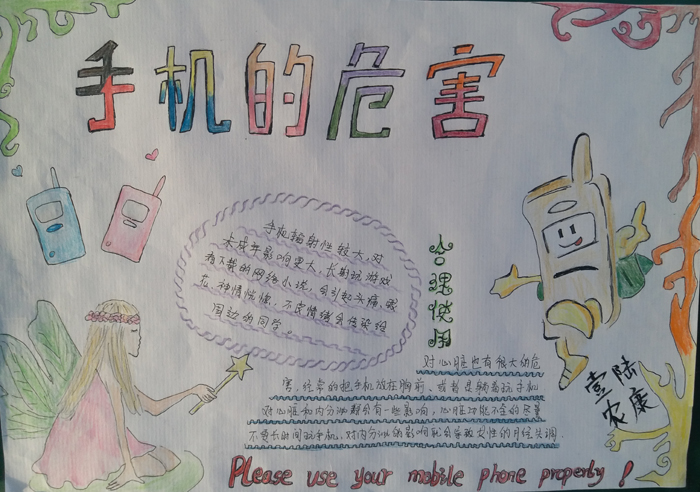 手机的危害
手机辐射性较大,对
未成年影响更大,长期玩游戏
看下载的网络小说,会引起头痛、眼
花、神情恍惚、不良情绪会传染给
周边的同学。
合理使用
对心脏也有很大的危
害,经常的把手机放在胸前、或者是躺着玩手机
对心脏和内分泌都会有一些影响,心脏功能不全的尽量
不要长时间玩手机,对内分泌的影响就会导致女性的月经失调.
壹陆
农康
Please use your mobile phone properthy !